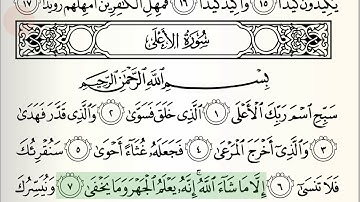 يَكِيدُونَ كَيْدًا ١٥ وَأَكِيدُ كَيْدًا ١٦ فَمَهِّلِ ٱلْكَٰفِرِينَ أَمْهِلْهُمْ رُوَيْدًۢا ١٧
سُورَةُ الأَعْلَى
بِسْمِ ٱللَّهِ ٱلرَّحْمَٰنِ ٱلرَّحِيمِ
سَبِّحِ ٱسْمَ رَبِّكَ ٱلْأَعْلَى ١ ٱلَّذِى خَلَقَ فَسَوَّىٰ ٢ وَٱلَّذِى قَدَّرَ فَهَدَىٰ
٣ وَٱلَّذِىٓ أَخْرَجَ ٱلْمَرْعَىٰ ٤ فَجَعَلَهُۥ غُثَآءً أَحْوَىٰ ٥ سَنُقْرِئُكَ
فَلَا تَنسَىٰٓ ٦ إِلَّا مَا شَآءَ ٱللَّهُ ۚ إِنَّهُۥ يَعْلَمُ ٱلْجَهْرَ وَمَا يَخْفَىٰ ٧ وَنُيَسِّرُكَ